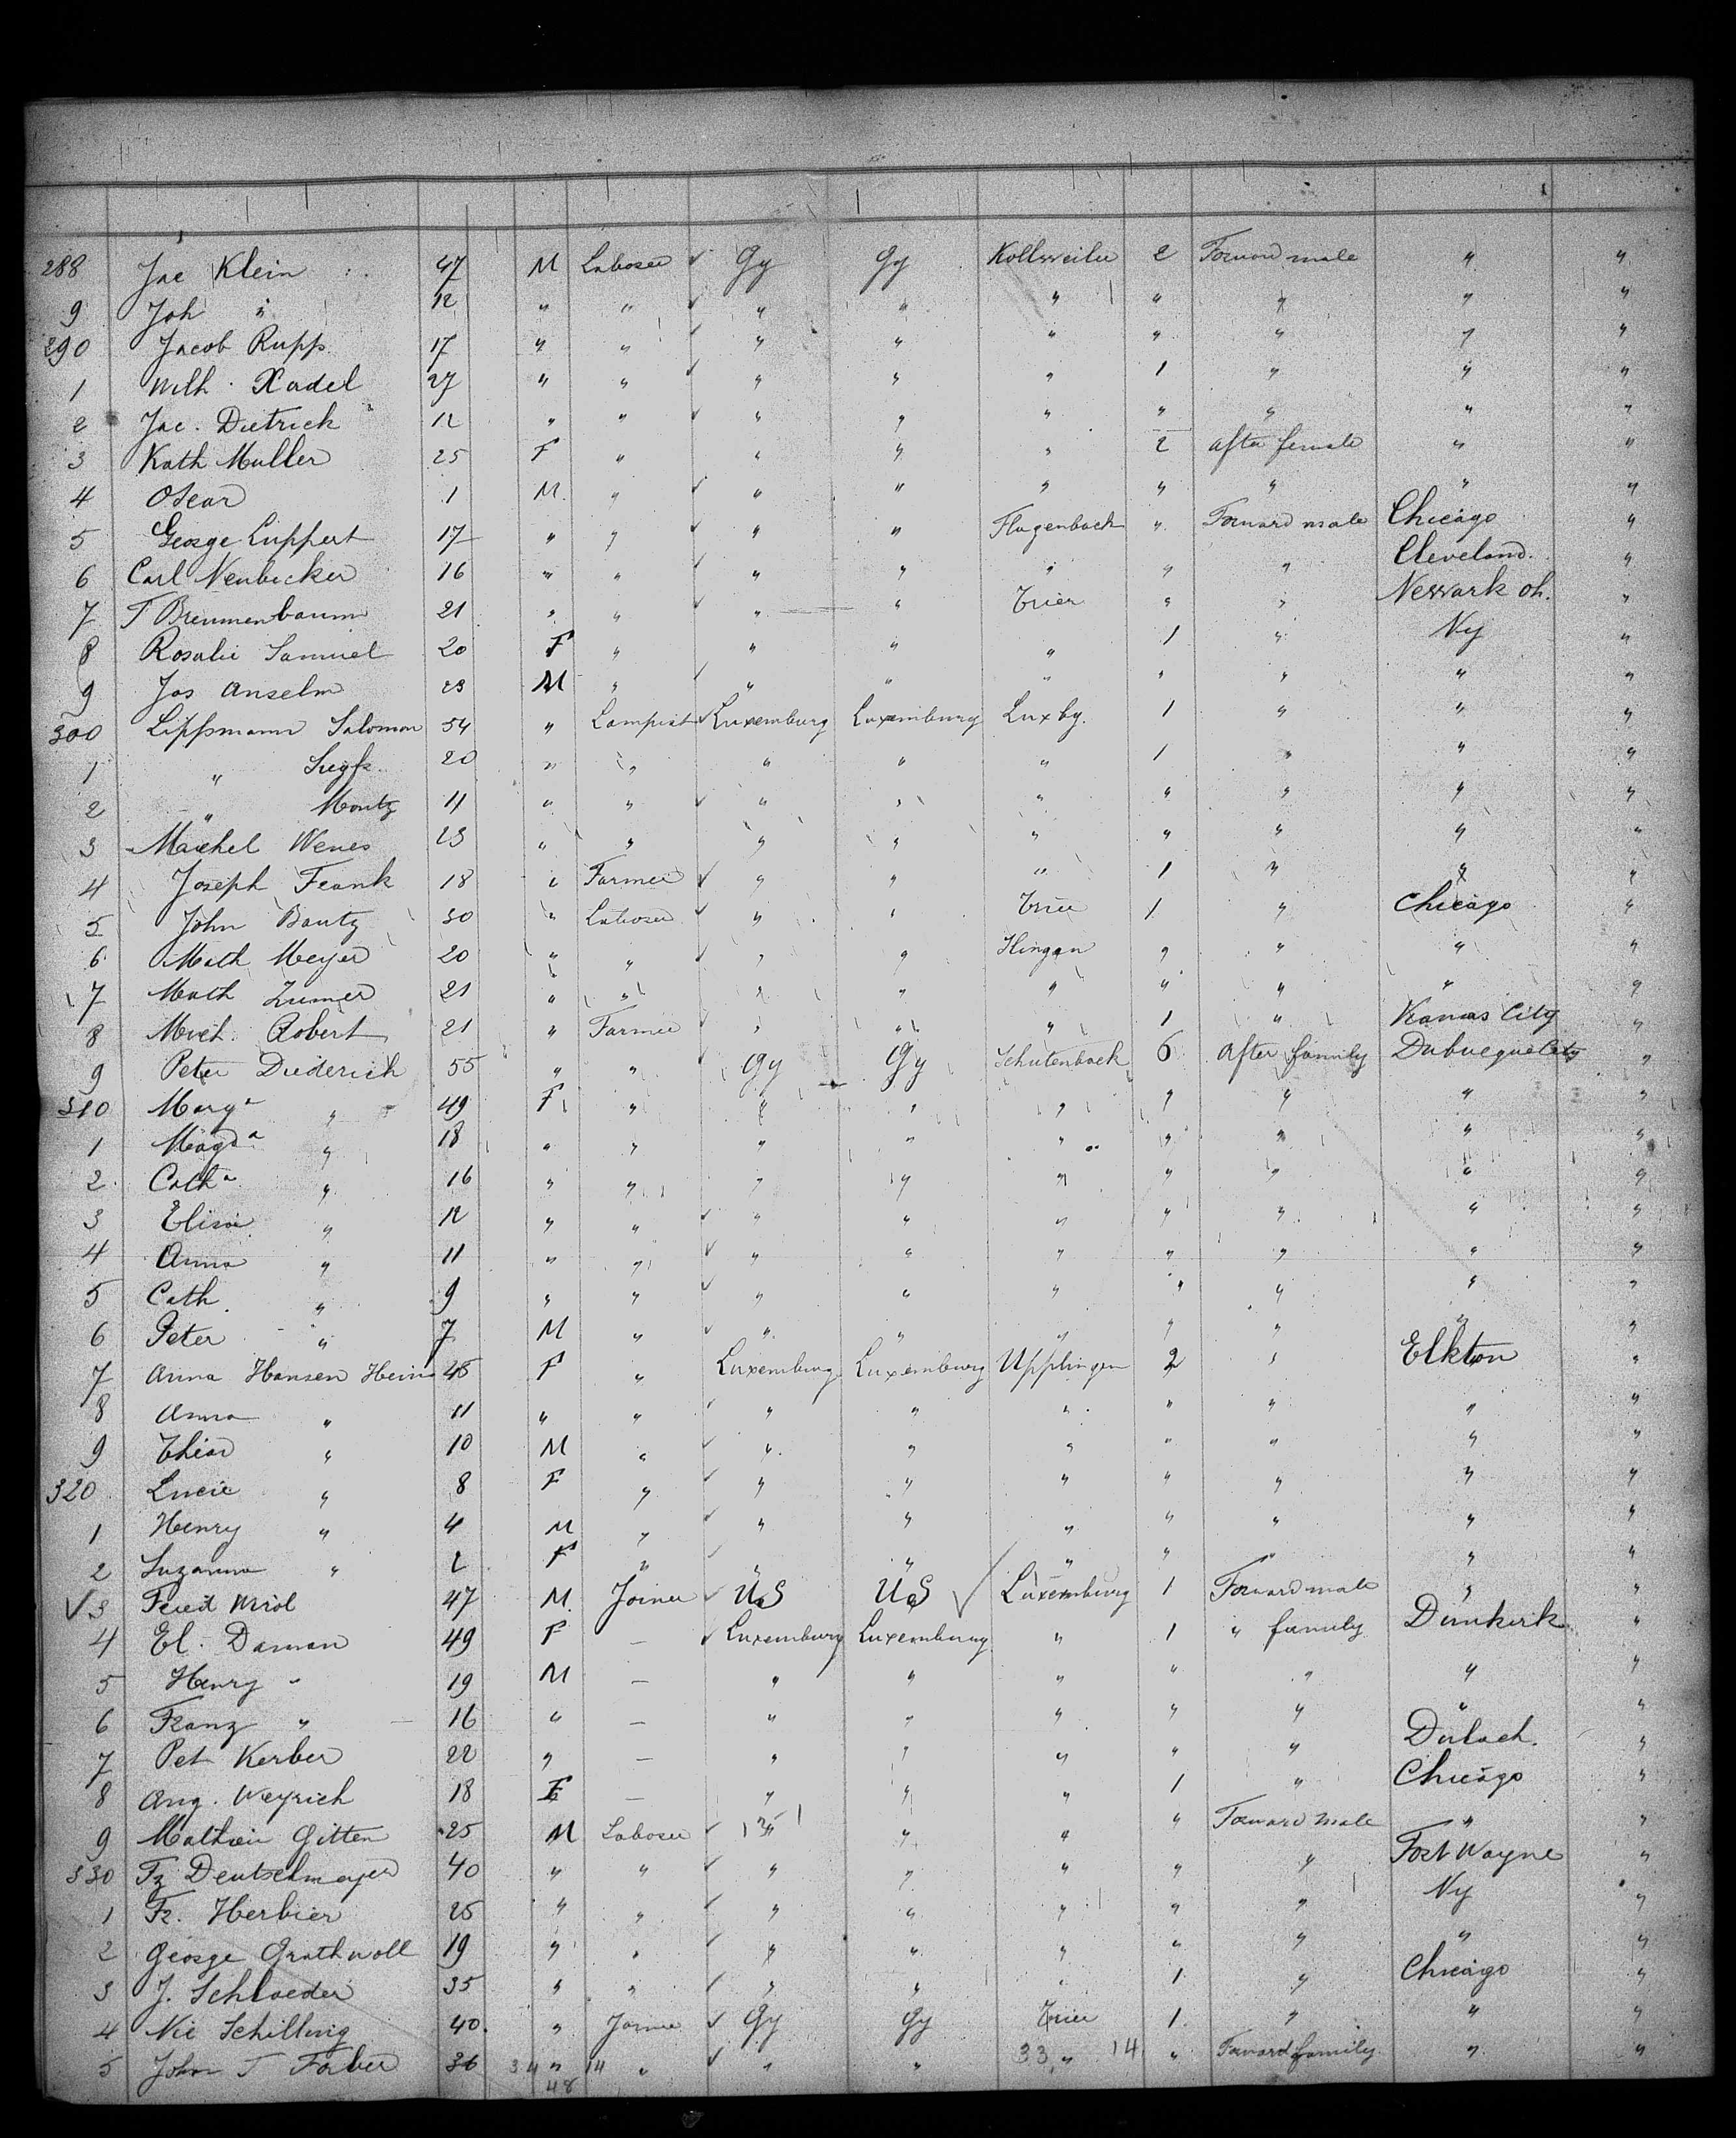 288 Jac Klein 47 M Laborer ✓ Gy Gy Kollweiler 2 Forward male " "
9 Joh " 12 " " ✓ " " " " " " "
290 Jacob Rupp 17 " " ✓ " " " " " " "
1 Wilh. Kadel 27 " " ✓ " " " 1 " " "
2 Jac. Dietrich 12 " " ✓ " " " " " " "
3 Kath Muller 25 F " " " " 2 after female " "
4 Oscar 1 M " ✓ " " " " " " "
5 George Luppert 17 " " ✓ " " Flagenbach " Forward male Chicago "
6 Carl Neubecker 16 " " ✓ " " " " " Cleveland. "
7 F Breumenbaum 21 " " ✓ " " Trier " " Newark Oh. "
8 Rosalie Samuel 20 F " " " " 1 " Ny "
9 Jos Anselm 23 M " ✓ " " " " " " "
300 Lippmann Salomon 54 " Lampist ✓ Luxemburg Luxemburg Luxbg. 1 " " "
1 " 20 " " " " " 1 " " "
2 " Moritz 11 " " ✓ " " " " " " "
3 Maichel Wenes 23 " " " " " " " " "
4 Joseph Frank 18 " Farmer ✓ " " " 1 " " "
5 John Bantz 30 " Laborer ✓ " " Trier 1 " Chicago "
6 Math Meyer 20 " " ✓ " " " " " "
7 Math Zumer 21 " " " " " " " " "
8 Mich. Robert 21 " Farmer ✓ " " " 1 " Kansas City "
9 Peter Diederich 55 " " ✓ Gy Gy Schutenbach 6 After family Dubuque City "
310 Marga " 49 F " " " " " " " "
1 Magda " 18 " " " " " " " " "
2 Catha " 16 " " " " " " " " "
3 Elise " 12 " " ✓ " " " " " " "
4 Anna " 11 " " ✓ " " " " " " "
5 Cath " 9 " " ✓ " " " " " " "
6 Peter " 7 M " ✓ " " " " " " "
7 Anna Hansen Hein 45 F " Luxemburg Luxemburg Upplingen 2 " Elkton "
8 Anna " 11 " " ✓ " " " " " " "
9 " 10 M " ✓ " " " " " " "
320 Lucie " 8 F " ✓ " " " " " " "
1 Henry " 4 M " ✓ " " " " " " "
2 Suzanna " 2 F " ✓ " " " " " " "
✓3 47 M. Joiner ✓ U.S U.S ✓ Luxemburg 1 Forward male " "
4 El. Daman 49 F — ✓ Luxemburg Luxemburg " 1 " family Dunkirk "
5 Henry " 19 M — " " " " " " "
6 Franz " 16 " — " " " " " " "
7 Pet Kerber 22 " — " " " " " "
8 Ang. Weyrich 18 F — " " " 1 " Chicago "
9 Mathieu Gitten 25 M Laborer ✓ " " " " Forward male " "
330 Fz Deutschmeyer 40 " " ✓ " " " " " Fort Wayne "
1 Fr. Herbier 25 " " ✓ " " " " " Ny "
2 George Grathwoll 19 " " ✓ " " " " " " "
3 J. Schloeder 35 " " ✓ " " " 1 " Chicago "
4 Nic Schilling 40. " Joiner ✓ Gy Gy Trier 1. " " "
5 John T Farber 36 34 " 14 " ✓ " " 33 " 14 " Forward family " "
48